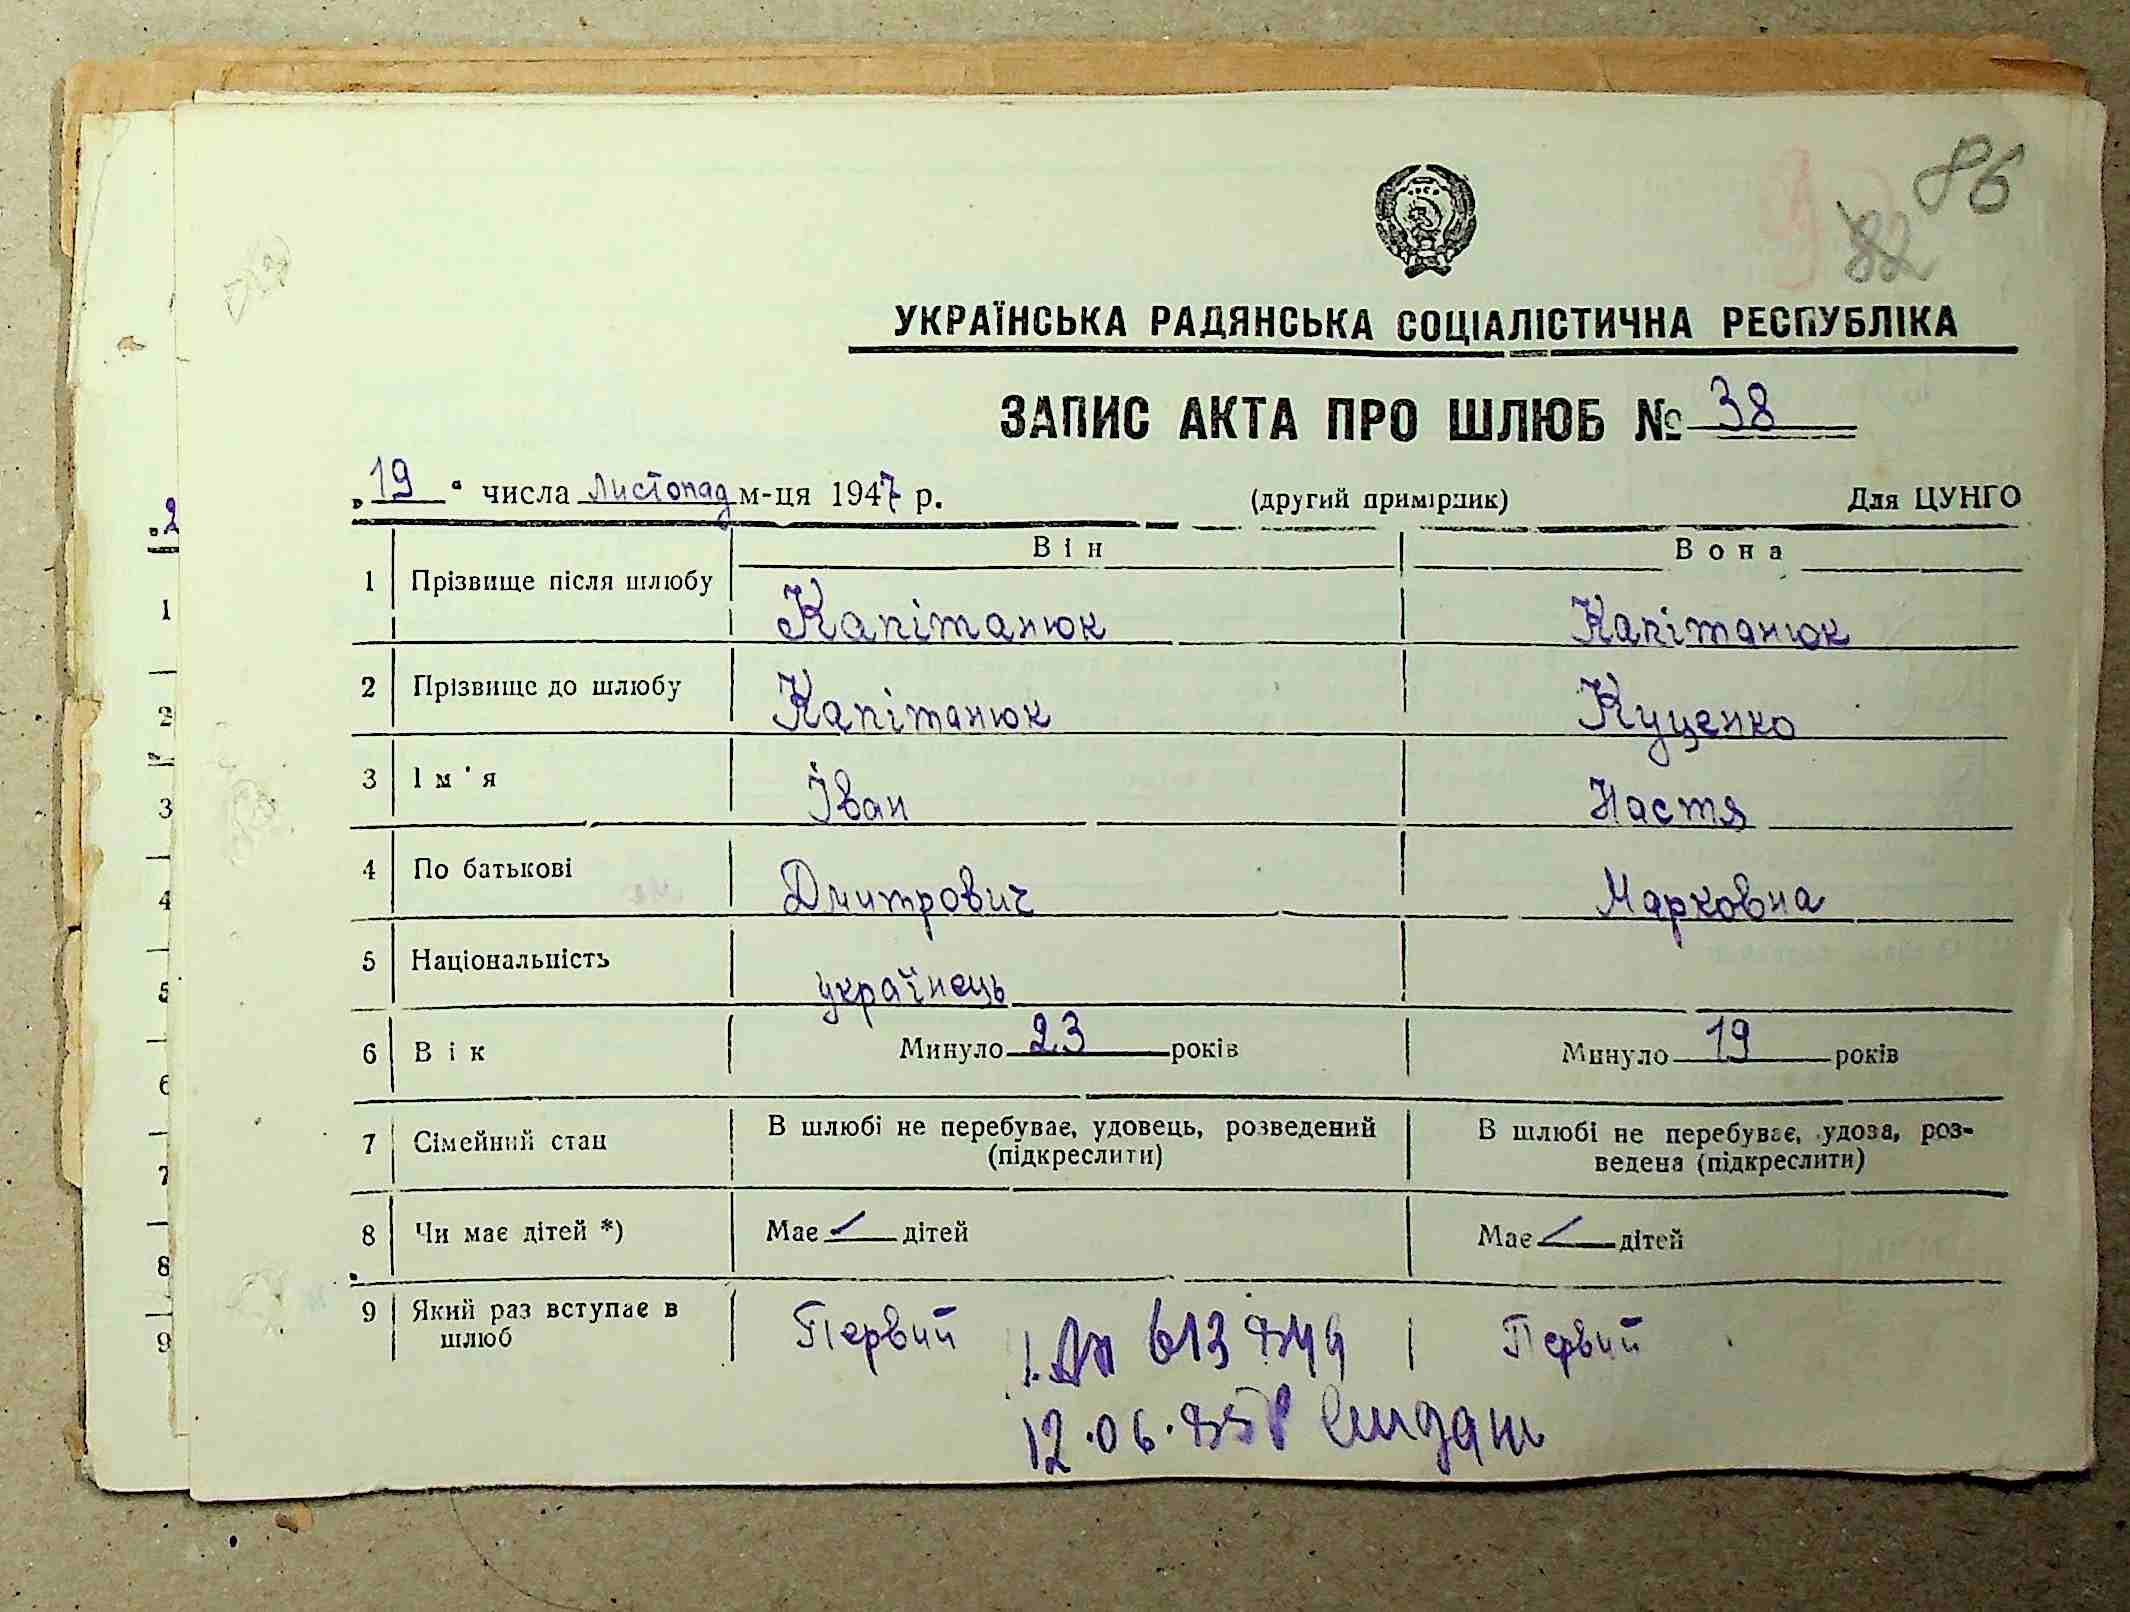 86
82
УКРАЇНСЬКА РАДЯНСЬКА СОЦІАЛІСТИЧНА РЕСПУБЛІКА
ЗАПИС АКТА ПРО ШЛЮБ № 38
„19“ числа Листопад м-ця 1947 р. (другий примірник) Для ЦУНГО
Він Вона
1 Прізвище після шлюбу Капітанюк Капітанюк
2 Прізвище до шлюбу Капітанюк Куценко
3 Ім'я Іван Настя
4 По батькові Дмитрович Марковна
5 Національність українець
6 Вік Минуло 23 років Минуло 19 років
7 Сімейний стан В шлюбі не перебуває, удовець, розведений (підкреслити) В шлюбі не перебуває, удова, роз-
ведена (підкреслити)
8 Чи має дітей *) Має — дітей Має — дітей
9 Який раз вступає в шлюб Первий Первий
613
12.06.
2
1
2
3
4
5
6
7
8
9